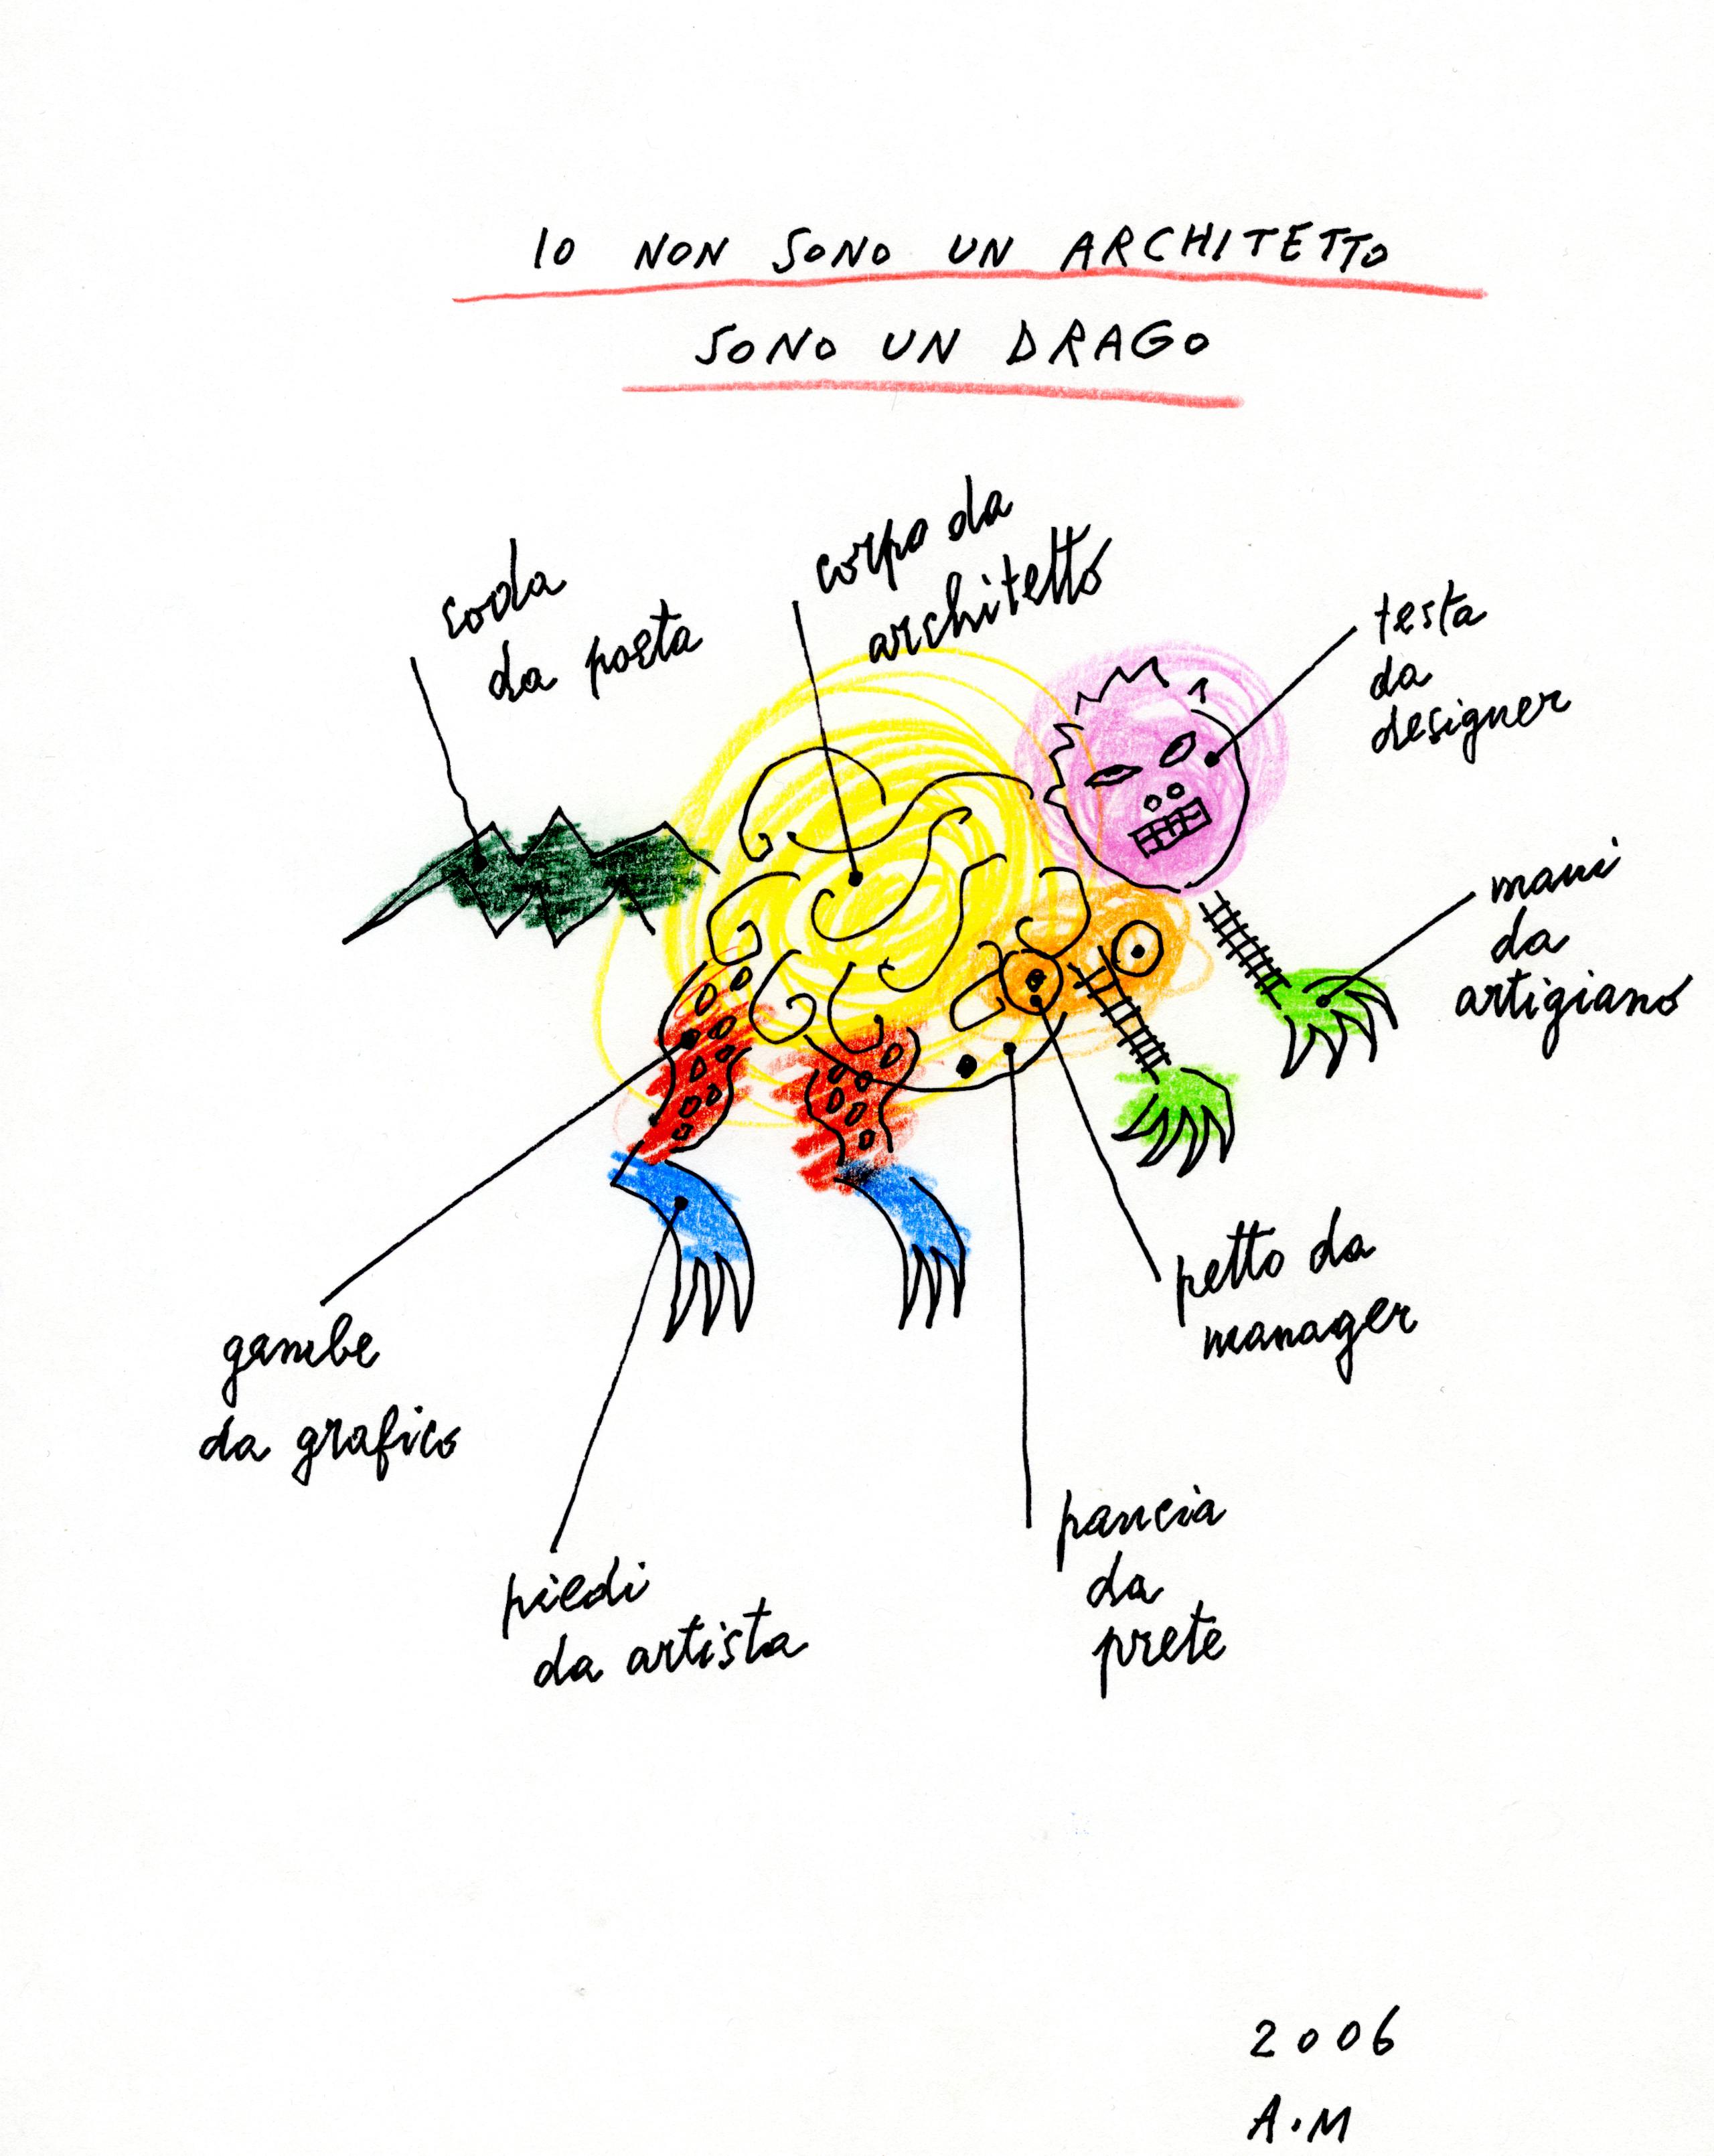 IO NON SONO UN ARCHITETTO
SONO UN DRAGO
coda
da poeta
corpo da
architetto
testa
da
designer
mani
da
artigiano
petto da
manager
gambe
da grafico
pancia
da
prete
piedi
da artista
2006
A.M